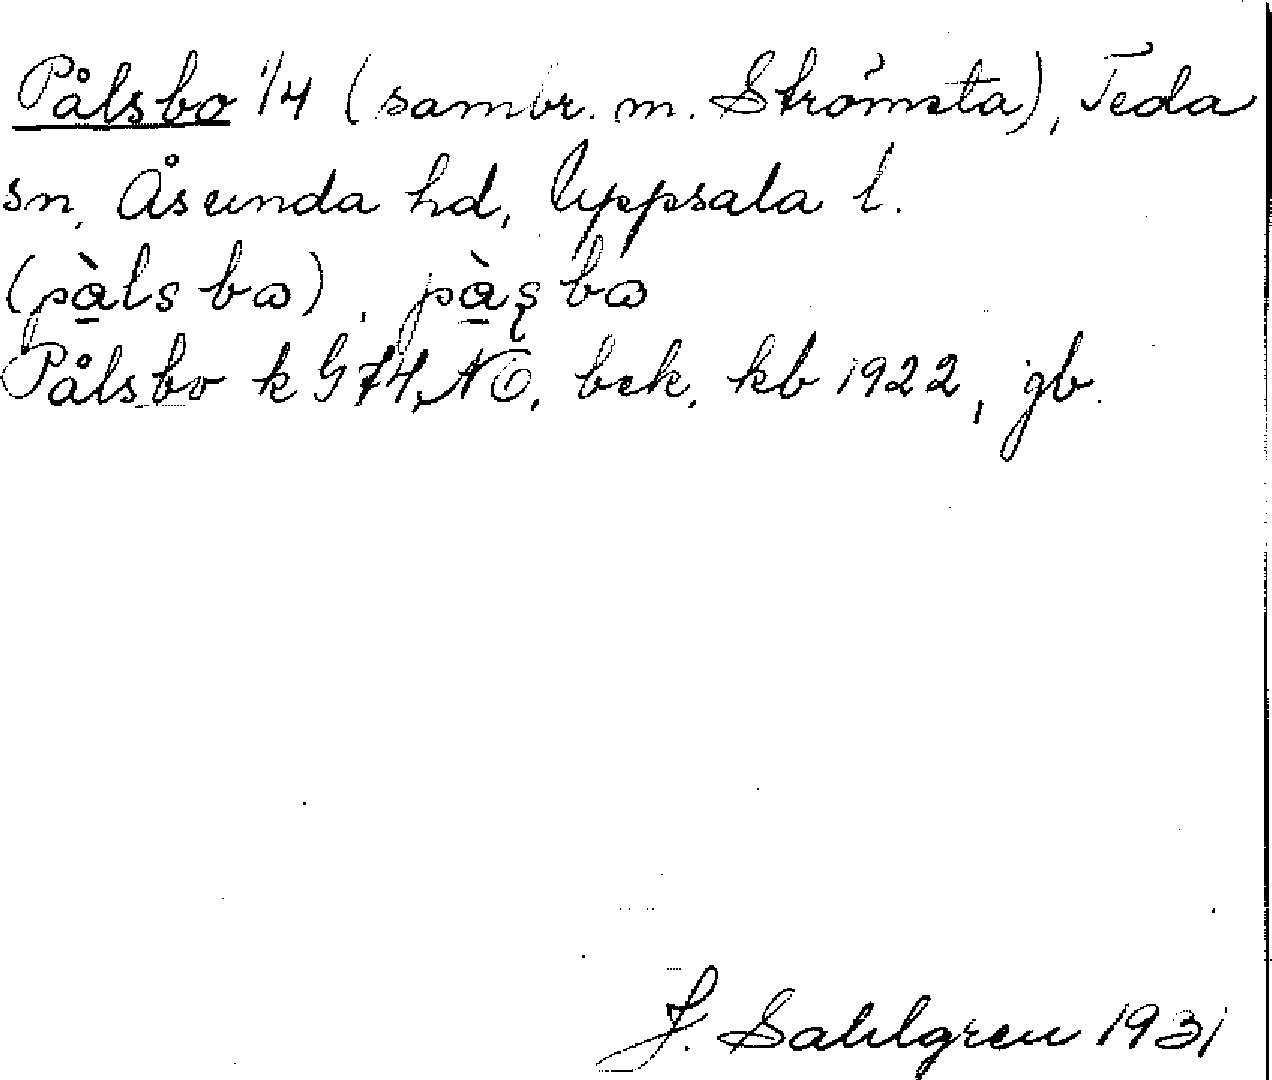 Pålsbo 1/4 (sambr. m. Strömsta), Teda
sn, Åsunda hd, Uppsala l.
(pàls bω), pàʂ bω
Pålsbo k G 74 NO, bek, kb 1922, gb.
J. Sahlgren 1931